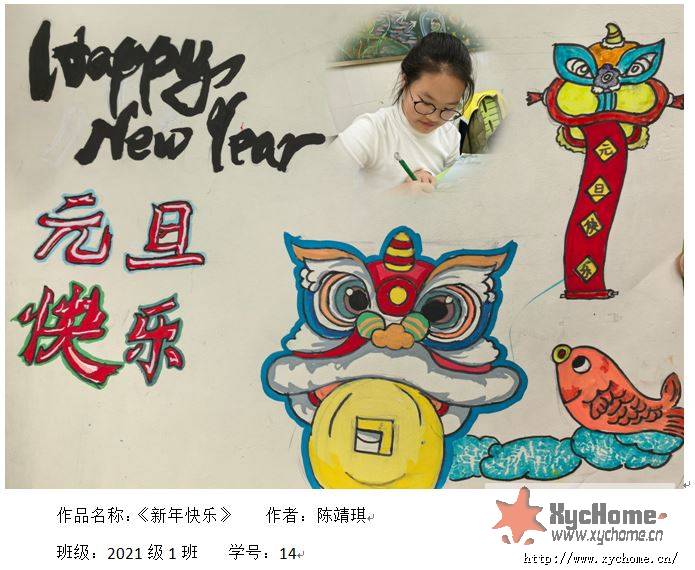 Happy
New Year
元旦
快乐
元
旦
快
乐
作品名称：《新年快乐》 作者：陈靖琪
班级：2021级1班 学号：14
XycHome
www.xychome.cn
http://www.xychome.cn/